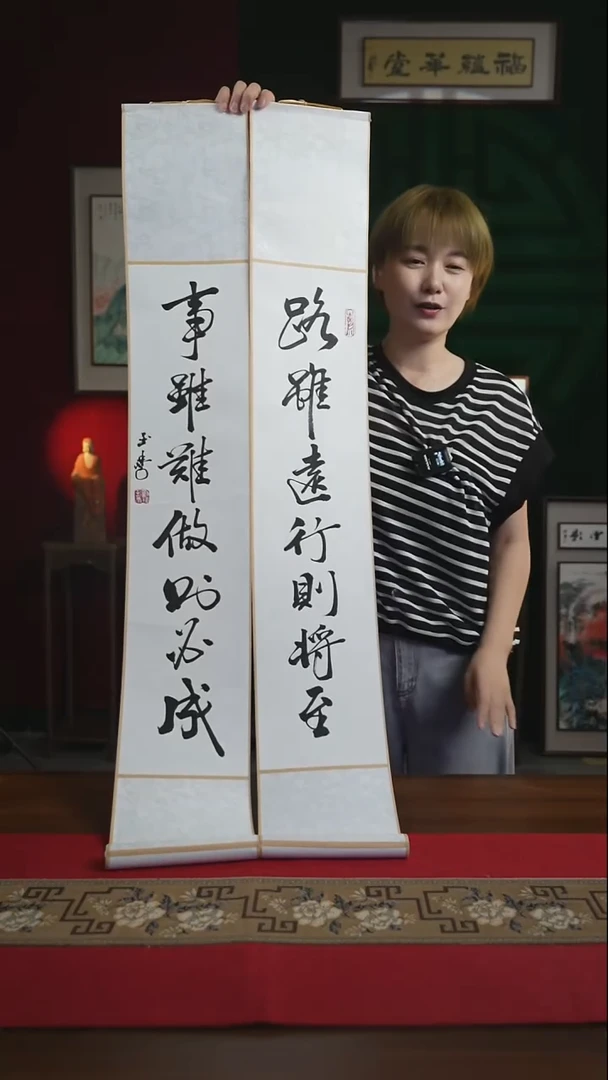 福蘊華堂
路雖遠行則將至
事雖難做則必成